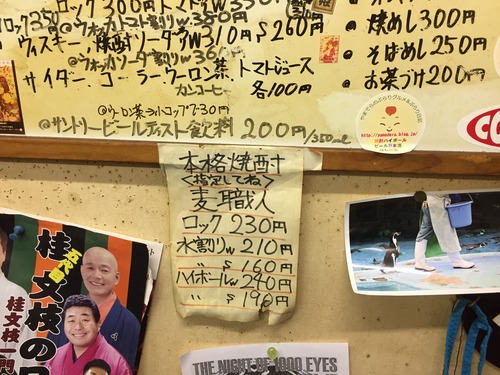 ロック 300円 トマト
ロック350
ウォッカトマト割りW350円
ウィスキー、焼酎ソーダ割W310円 S 260円
@ウォッカソーダ割りW36
サイダー、コーラーウーロン茶、トマトジュース
カンコーヒー 各100円
@ウーロン茶ラットロップ7-30円
@サントリービールテイスト飲料 200円/350ml
・焼めし300円
・そばめし250円
・お茶づけ200円
http://yamadera.blog.jp/
本格焼酎
<指定してね>
麦職人
ロック 230円
水割りW 210円
〃 S 160円
ハイボールW 240円
〃 S 190円
五代目
桂 文枝の
桂文枝一門
THE NIGHT OF 1000 EYES